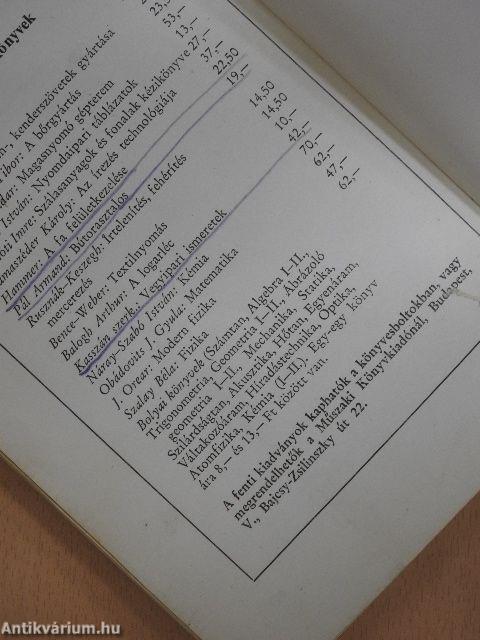 önyvek
kenderszövetek gyártása
ibor: A bőrgyártás 53,—
dar: Magasnyomó gépterem 13,—
István: Nyomdaipari táblázatok
oti Imre: Szálasanyagok és fonalak kézikönyve 27,—
maszéder Károly: Az írezés technológiája 37,—
Hammer: A fa felületkezelése 22,50
Pál Armand: Bútorasztalos 19,—
Rusznák-Keszegh: Írtelenítés, fehérítés,
mercerezés 14,50
Bence-Weber: Textilnyomás 14,50
Balogh Arthur: A logarléc 10,—
Kasszán szerk.: Vegyipari ismeretek 42,—
Náray-Szabó István: Kémia 70,—
Obádovits J. Gyula: Matematika 62,—
J. Orear: Modern fizika 47,—
Szalay Béla: Fizika 62,—
Bolyai könyvek (Számtan, Algebra I–II.,
Trigonometria, Geometria I–II., Ábrázoló
geometria I–II., Mechanika, Statika,
Szilárdságtan, Akusztika, Hőtan, Egyenáram,
Váltakozóáram, Híradástechnika, Optika,
Atomfizika, Kémia (I–II). Egy-egy könyv
ára 8,— és 13,— Ft között van.
A fenti kiadványok kaphatók a könyvesboltokban, vagy
megrendelhetők a Műszaki Könyvkiadónál, Budapest,
V., Bajcsy-Zsilinszky út 22.
Antikvárium.hu